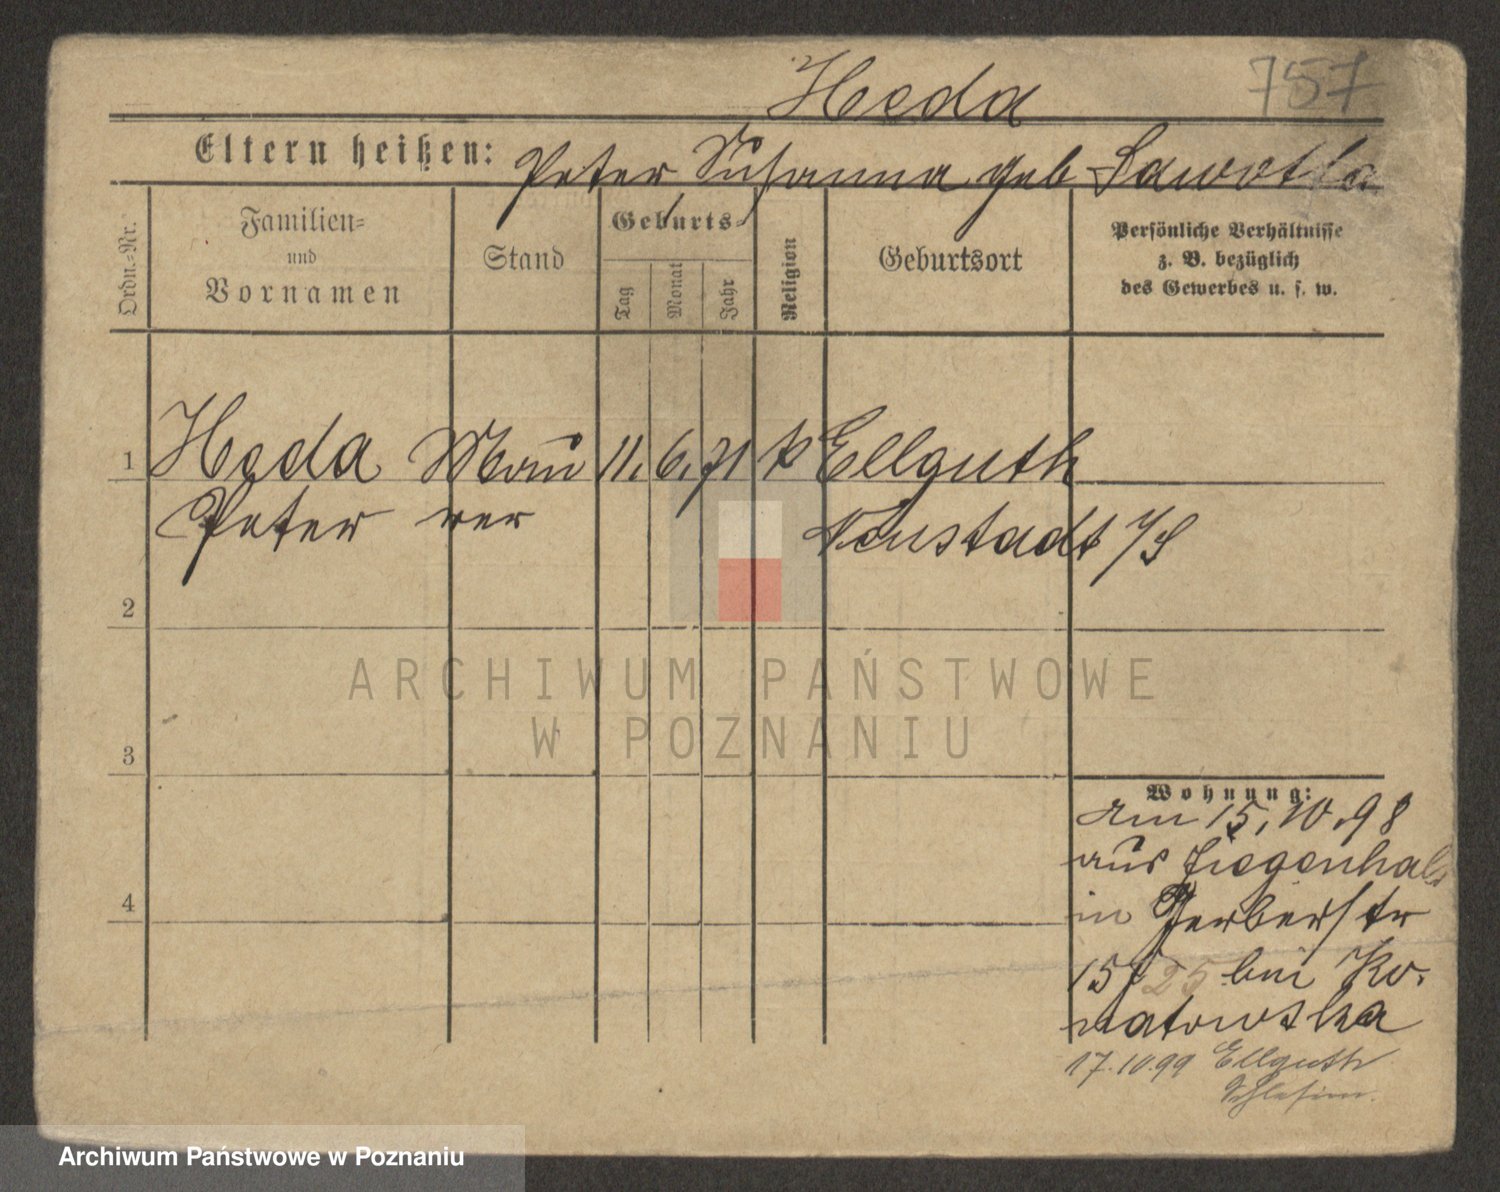 Heda
757
Eltern heißen: Peter Susanna geb Sawotka
Ordn.-Nr.
Familien-
und
Vornamen
Stand
Geburts-
Tag
Monat
Jahr
Religion
Geburtsort
Persönliche Verhältnisse
z. B. bezüglich
des Gewerbes u. s. w.
1 Heda Mau 11. 6. 71 k Ellguth
Peter rer Neustadt /S
2
3
4
Wohnung:
am 15.10.98
aus Ziegenhals
in Gerberstr
15/25 bei Ko-
natowska
17.10.99 Ellguth
Schlesien.
ARCHIWUM PAŃSTWOWE
W POZNANIU
Archiwum Państwowe w Poznaniu